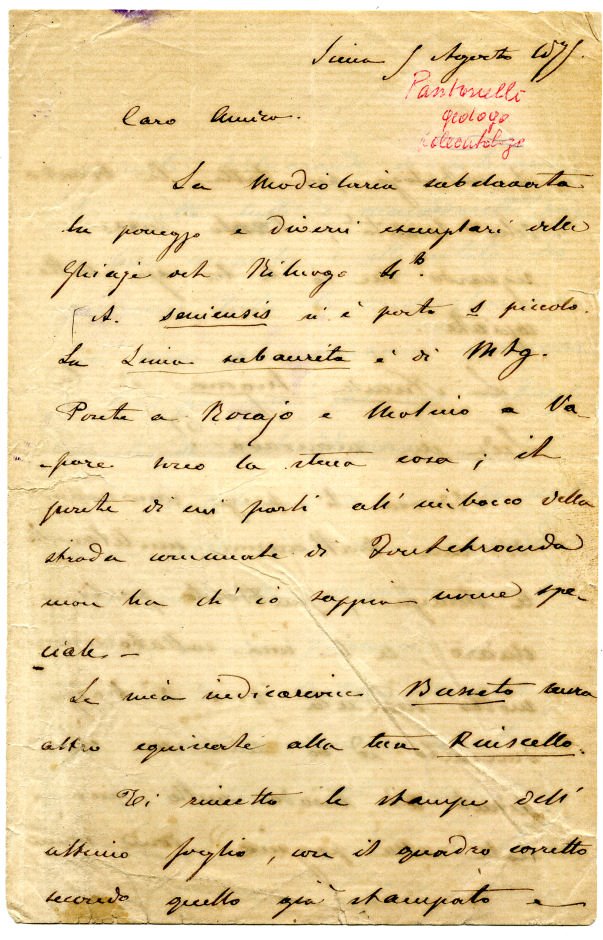 Siena 5 Agosto 1875.
Pantanelli
geologo
paleontologo
Caro Amico.
La Modiolaria subclavata
la posseggo e diversi esemplari delle
Ghiaje del Riluogo
A. seniensis si è posto s piccolo.
La Lima subaurita è di Mtg.
Ponte a Bocajo e Molino a Va-
-pore sono la stessa cosa; il
ponte di cui parli all' imbocco della
strada comunale di Fontebranda
non ha ch' io sappia nome spe-
ciale -
La mia indicazione Busseto
altro equivale alla tua Ruiscello.
Ti rimetto le stampe dell'
ultimo foglio, con il quadro corretto
secondo quello già stampato e